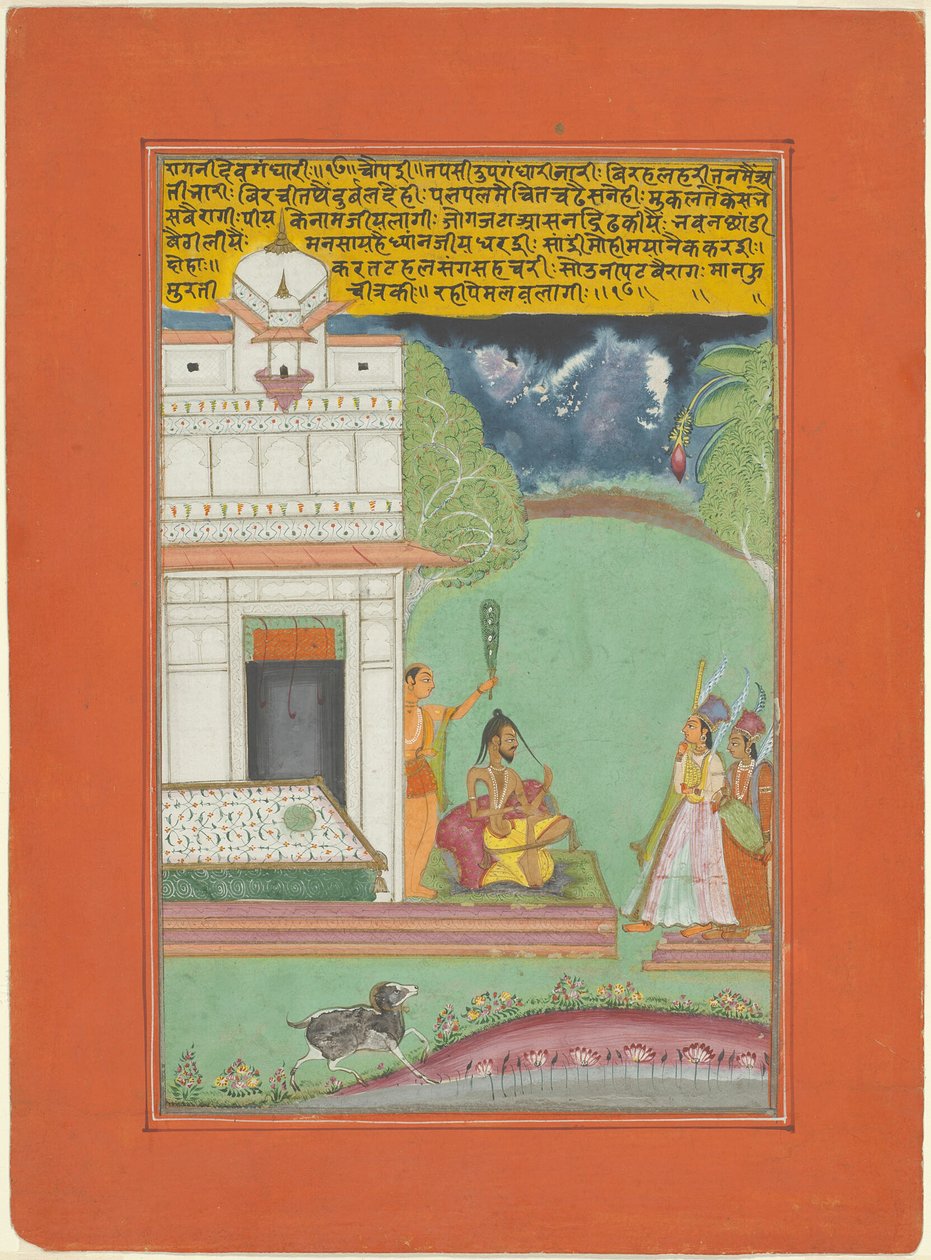 रागनी देवगंधारी॥१७॥ चौपई॥ तपसी दुपगंधारी नारी: बिरह लहरी तन मैं अ
ती जारी: बिरची तथै दुर्बल देही: पल पल मै चित चढै सनेही: मुकलतै केस
सबैरागी: पीय के नाम जीय लागी: जोग जटा आसन द्रिढ कीयै नवन छांडी
बैग लीयै: मनसा यहै ध्यान जीय धरई: सांडी मोही मया नैक करई॥
दोहाः॥ करत टहल संग सहचरी: सोउ नीपट बैराग: मानहु
मुरती चीत्र की॥ रही पेमलव लागी:॥१७॥ ॥ ॥